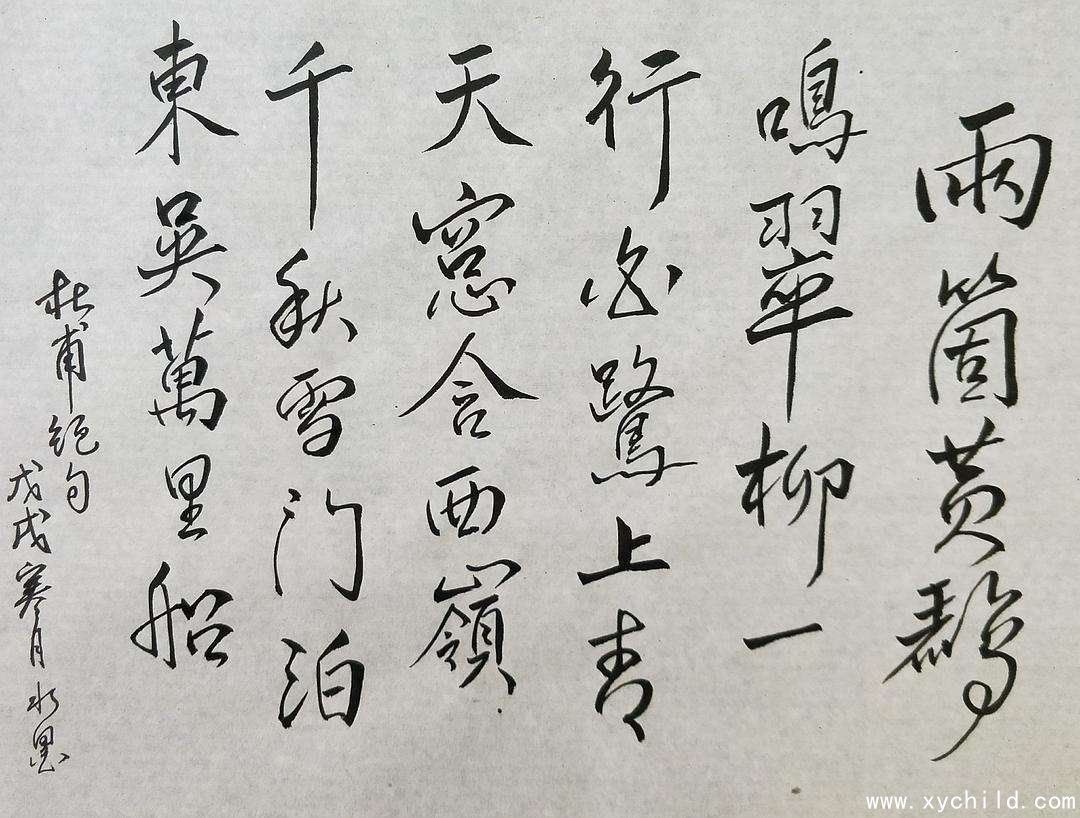 兩箇黄鸝
鳴翠柳一
行白鷺上青
天窻含西嶺
千秋雪门泊
東吳萬里船
杜甫絕句
戊戌寒月水墨
www.xychild.com